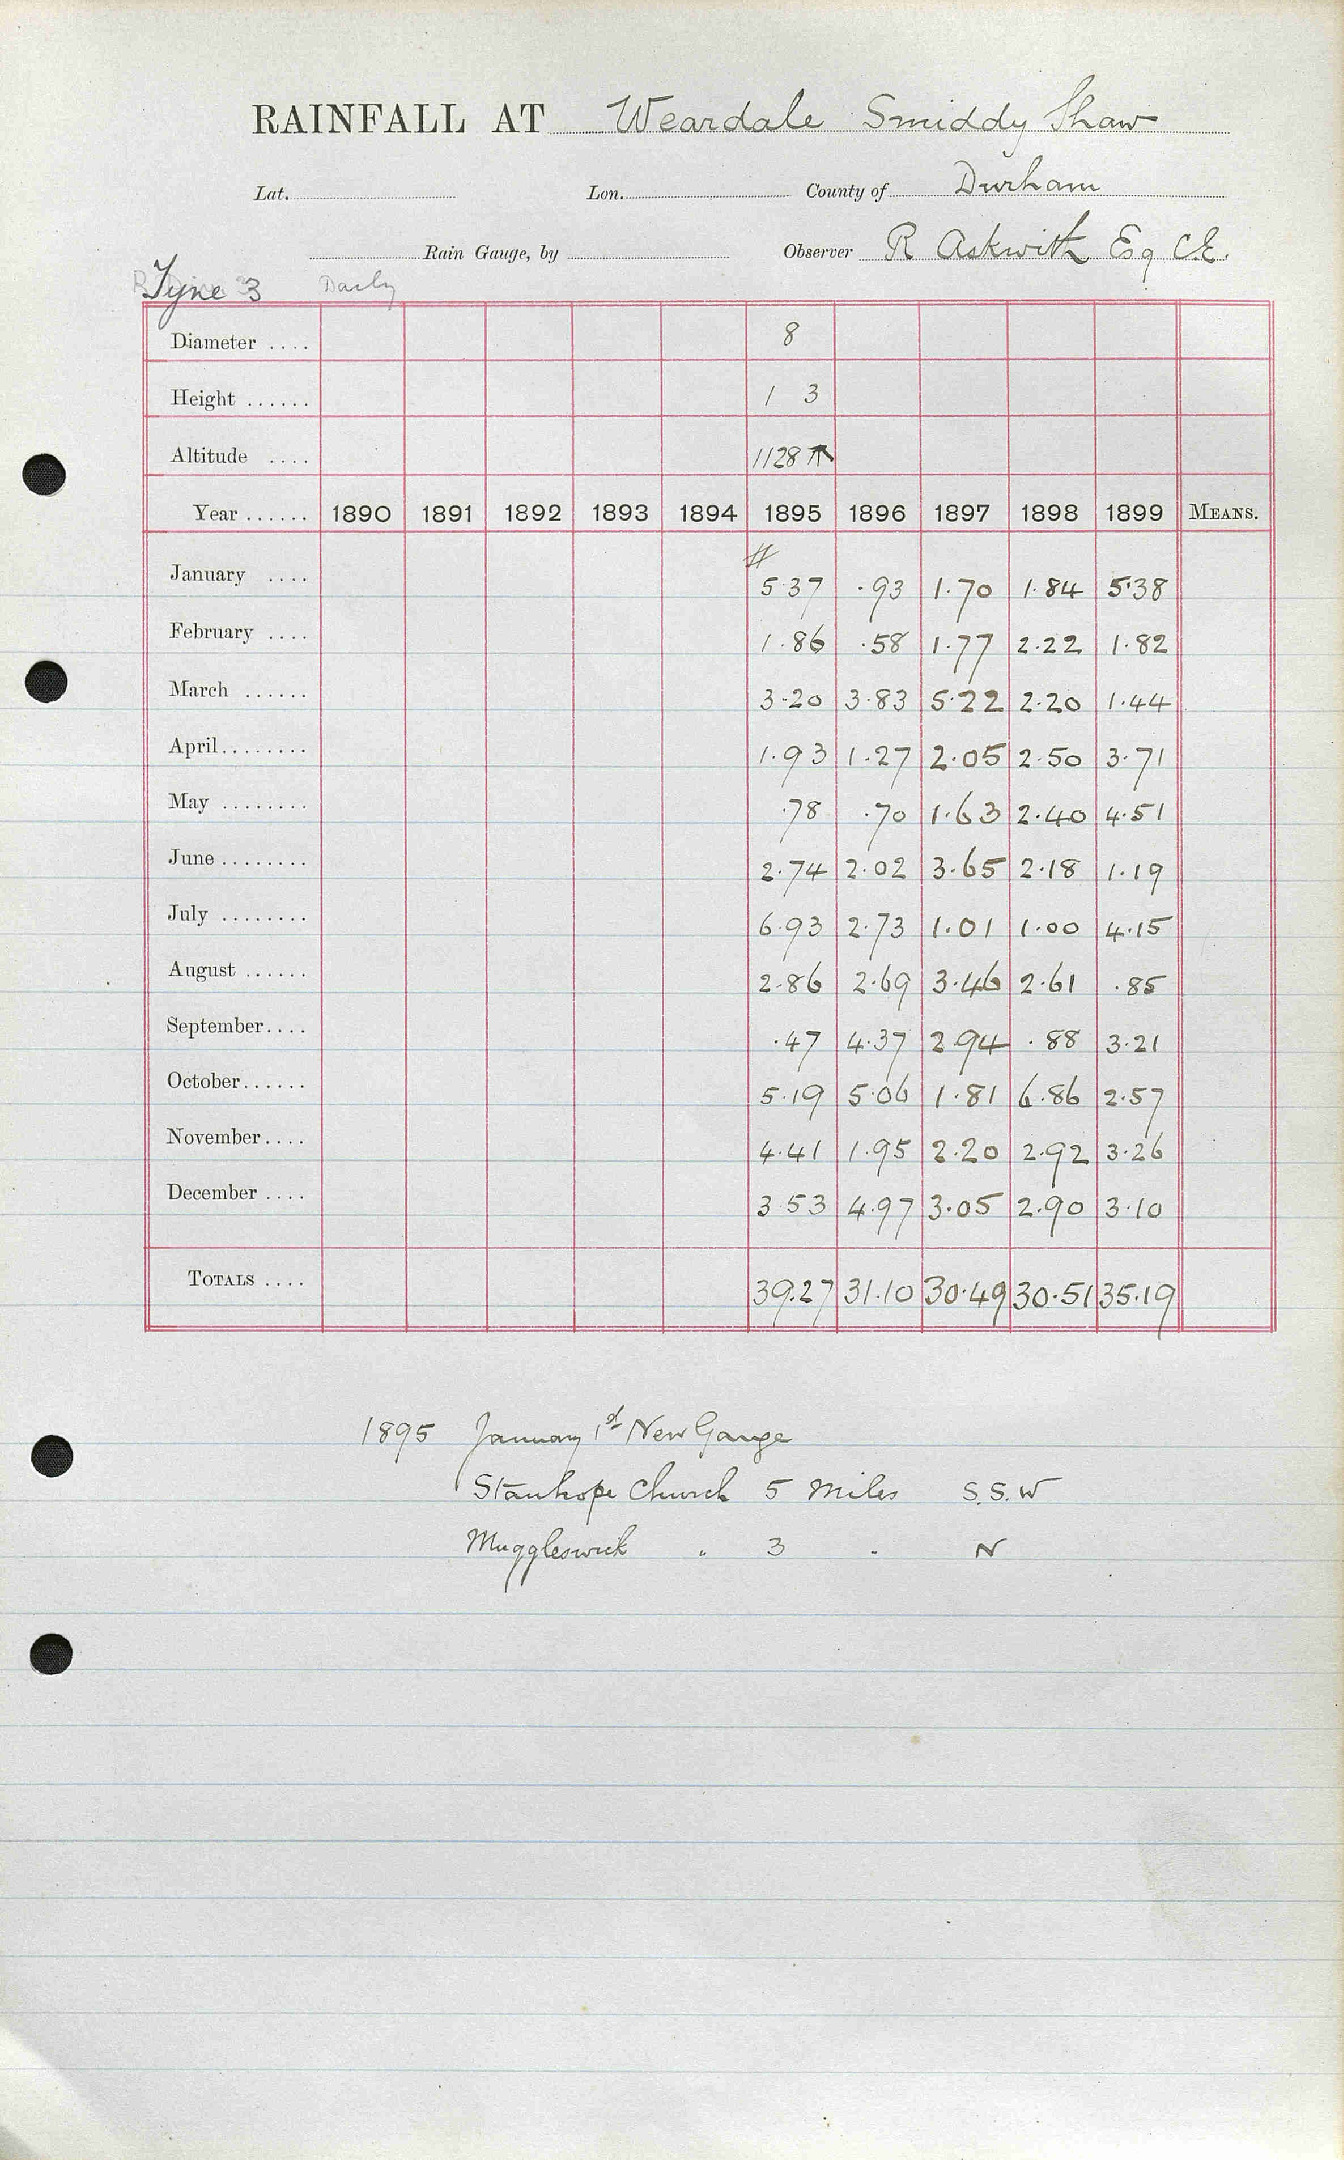 RAINFALL AT Weardale Smiddy Shaw
Lat. Lon. County of Durham
Rain Gauge, by Observer R Askwith Esq C.E.
Tyne 3 Daily
Diameter .... 8
Height ...... 1 3
Altitude .... 1128
Year ...... 1890 1891 1892 1893 1894 1895 1896 1897 1898 1899 MEANS.
#
January .... 5.37 .93 1.70 1.84 5.38
February .... 1.86 .58 1.77 2.22 1.82
March ...... 3.20 3.83 5.22 2.20 1.44
April........ 1.93 1.27 2.05 2.50 3.71
May ........ .78 .70 1.63 2.40 4.51
June ........ 2.74 2.02 3.65 2.18 1.19
July ........ 6.93 2.73 1.01 1.00 4.15
August ...... 2.86 2.69 3.46 2.61 .85
September.... .47 4.37 2.94 .88 3.21
October...... 5.19 5.06 1.81 6.86 2.57
November.... 4.41 1.95 2.20 2.92 3.26
December .... 3.53 4.97 3.05 2.90 3.10
TOTALS .... 39.27 31.10 30.49 30.51 35.19
1895 January 1st New Gauge
Stanhope Church 5 Miles S.S.W
Muggleswick " 3 " N